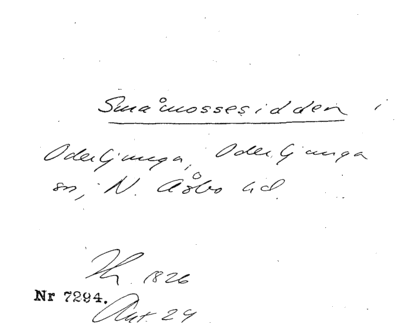 Småmossesidden i
Oderljunga, Oderljunga
sn, N. Åsbo hd.
Th. 1826
Nr 7294.
Ant. 24